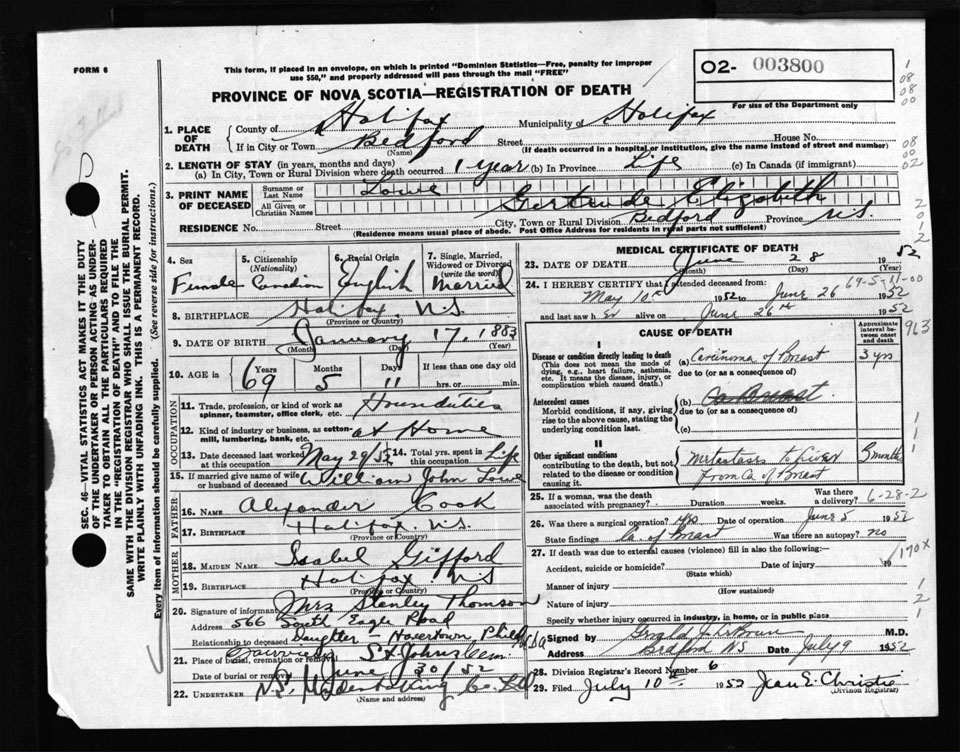 FORM 6
This form, if placed in an envelope, on which is printed "Dominion Statistics—Free, penalty for improper
use $50," and properly addressed will pass through the mail "FREE"
02- 003800
For use of the Department only
PROVINCE OF NOVA SCOTIA—REGISTRATION OF DEATH
1. PLACE OF DEATH
County of Halifax Municipality of Halifax
If in City or Town Bedford Street House No.
(Name) (If death occurred in a hospital or institution, give the name instead of street and number)
2. LENGTH OF STAY (in years, months and days)
(a) In City, Town or Rural Division where death occurred 1 year (b) In Province Life (c) In Canada (if immigrant)
3. PRINT NAME OF DECEASED
Surname or Last Name Lowe
All Given or Christian Names Gertrude Elizabeth
RESIDENCE No. Street City, Town or Rural Division Bedford Province N.S.
(Residence means usual place of abode. Post Office Address for residents in rural parts not sufficient)
4. Sex
Female
5. Citizenship
(Nationality)
Canadian
6. Racial Origin
English
7. Single, Married,
Widowed or Divorced
(write the word)
Married
8. BIRTHPLACE Halifax. N.S.
(Province or Country)
9. DATE OF BIRTH January 17, 1883
(Month) (Day)
10. AGE in
Years 69
Months 5
Days 11
If less than one day old
hrs. or min.
OCCUPATION
11. Trade, profession, or kind of work as
spinner, teamster, office clerk, etc. Houseduties
12. Kind of industry or business, as cotton-
mill, lumbering, bank, etc. at Home
13. Date deceased last worked
at this occupation May 29/52
14. Total yrs. spent in
this occupation Life
15. If married give name of wife
or husband of deceased William John Lowe
FATHER
16. NAME Alexander Cook
17. BIRTHPLACE Halifax. N.S.
(Province or Country)
MOTHER
18. MAIDEN NAME Isabel Gifford
19. BIRTHPLACE Halifax N.S
(Province or Country)
20. Signature of informant Mrs Stanley Thomson
Address 566 South Eagle Road
Relationship to deceased Daughter - Havertown,
21. Place of burial, cremation or removal St Johns Cem.
Date of burial or removal June 30/52
22. UNDERTAKER N.S. Undertaking Co. Ltd
(Name and address)
MEDICAL CERTIFICATE OF DEATH
23. DATE OF DEATH June 28 1952
(Month) (Day) (Year)
69-5-11-00
24. I HEREBY CERTIFY that I attended deceased from:
May 10th 1952 to June 26 1952
and last saw h er alive on June 26th 1952
CAUSE OF DEATH
Approximate
interval be-
tween onset
and death
I
Disease or condition directly leading to death
(This does not mean the mode of
dying, e.g., heart failure, asthenia,
etc. It means the disease, injury, or
complication which caused death.)
(a) Carcinoma of Breast 3 yrs
due to (or as a consequence of)
Antecedent causes
Morbid conditions, if any, giving
rise to the above cause, stating the
underlying condition last.
(b)
due to (or as a consequence of)
(c)
II
Other significant conditions
contributing to the death, but not
related to the disease or condition
causing it.
Metastases to Liver
From Ca of Breast
3 months
25. If a woman, was the death
associated with pregnancy? Duration weeks. Was there
a delivery?
6-28-2
26. Was there a surgical operation? yes Date of operation June 5 1952
State findings Ca. of Breast Was there an autopsy? no
27. If death was due to external causes (violence) fill in also the following:—
Accident, suicide or homicide? Date of injury 19
(State which)
170X
Manner of injury
(How sustained)
Nature of injury
Specify whether injury occurred in industry, in home, or in public place
Signed by M.D.
Address Bedford NS Date July 9 1952
28. Division Registrar's Record Number 6
29. Filed July 10th 1952 Jean E. Christie
(Division Registrar)
963
SEC. 46—VITAL STATISTICS ACT MAKES IT THE DUTY
OF THE UNDERTAKER OR PERSON ACTING AS UNDER-
TAKER TO OBTAIN ALL THE PARTICULARS REQUIRED
IN THE "REGISTRATION OF DEATH" AND TO FILE THE
SAME WITH THE DIVISION REGISTRAR WHO SHALL ISSUE THE BURIAL PERMIT.
WRITE PLAINLY WITH UNFADING INK. THIS IS A PERMANENT RECORD.
Every item of information should be carefully supplied. (See reverse side for instructions.)